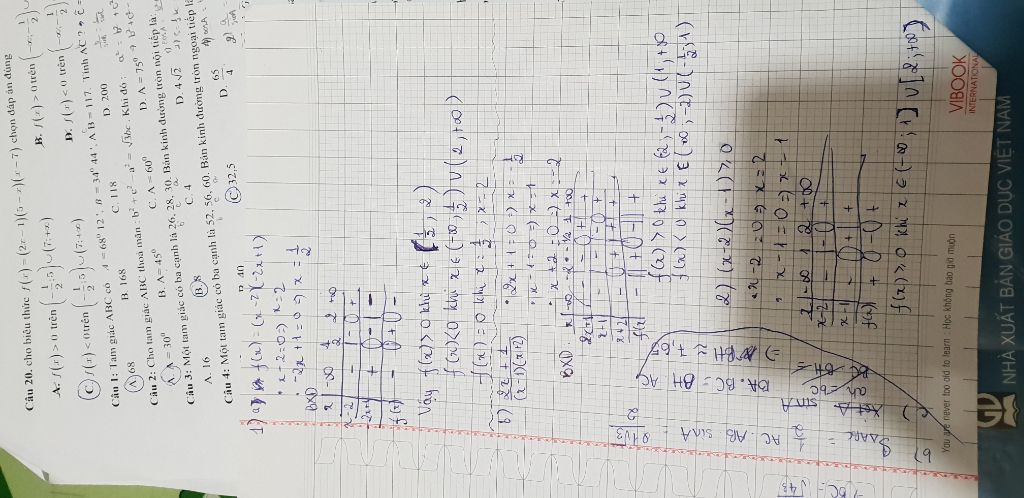 Câu 20. cho biểu thức f(x) = (2x − 1)(5 − x)(x − 7) chọn đáp án đúng
A. f(x) > 0 trên (−1/2; 5) ∪ (7; +∞)
B. f(x) > 0 trên (−∞; −1/2) ∪
C. f(x) < 0 trên (−1/2; 5) ∪ (7; +∞)
D. f(x) < 0 trên (−∞; −1/2)
Câu 1: Tam giác ABC có A = 68° 12', B = 34° 44', AB = 117. Tính AC ?
A. 68
B. 168
C. 118
D. 200
Câu 2: Cho tam giác ABC thoả mãn : b² + c² − a² = √3bc. Khi đó :
A. A = 30°
B. A = 45°
C. A = 60°
D. A = 75°
Câu 3: Một tam giác có ba cạnh là 26, 28, 30. Bán kính đường tròn nội tiếp là:
A. 16
B. 8
C. 4
D. 4√2
Câu 4: Một tam giác có ba cạnh là 52, 56, 60. Bán kính đường tròn ngoại tiếp là
40
C. 32,5
D. 65/4
1) a) f(x) = (x−2)(−2x+1)
• x−2=0 => x=2
• −2x+1=0 => x = 1/2
BXD
x −∞ 1/2 2 +∞
x−2 − | − 0 +
−2x+1 + 0 − | −
f(x) − 0 + 0 −
Vậy f(x) > 0 khi x ∈ (1/2; 2)
f(x) < 0 khi x ∈ (−∞; 1/2) ∪ (2; +∞)
f(x) = 0 khi x = 1/2, x = 2
b) 2x+1 / (x−1)(x+2)
• 2x+1=0 => x = −1/2
• x−1=0 => x=1
• x+2=0 => x=−2
BXD
x −∞ −2 −1/2 1 +∞
2x+1 − | − 0 + | +
x−1 − | − | − 0 +
x+2 − 0 + | + | +
f(x) − || + 0 − || +
f(x) > 0 khi x ∈ (−2; −1/2) ∪ (1; +∞
f(x) < 0 khi x ∈ (−∞; −2) ∪ (−1/2; 1)
2) (x−2)(x−1) ⩾ 0
• x−2=0 => x=2
• x−1=0 => x=1
x −∞ 1 2 +∞
x−2 − | − 0 +
x−1 − 0 + | +
f(x) + 0 − 0 +
f(x) ⩾ 0 khi x ∈ (−∞; 1] ∪ [2; +∞)
b)
S ABC = 1/2 AC. AB sin A = 91√3 / 2
BH ≈ 7,65
You are never too old to learn
Học không bao giờ muộn
VIBOOK
INTERNATIONAL
NHÀ XUẤT BẢN GIÁO DỤC VIỆT NAM